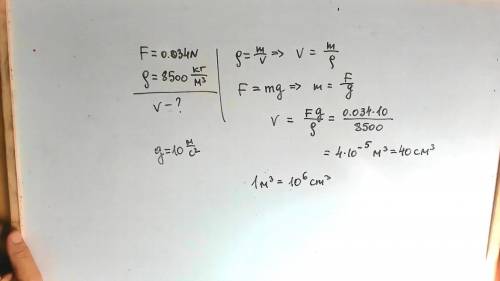 F = 0.034N
ρ = 8500 кг/м³
V - ?
g = 10 м/с²
ρ = m/V => V = m/ρ
F = mg => m = F/g
V = Fg/ρ = 0.034·10/8500
= 4·10⁻⁵ м³ = 40 см³
1 м³ = 10⁶ cm³